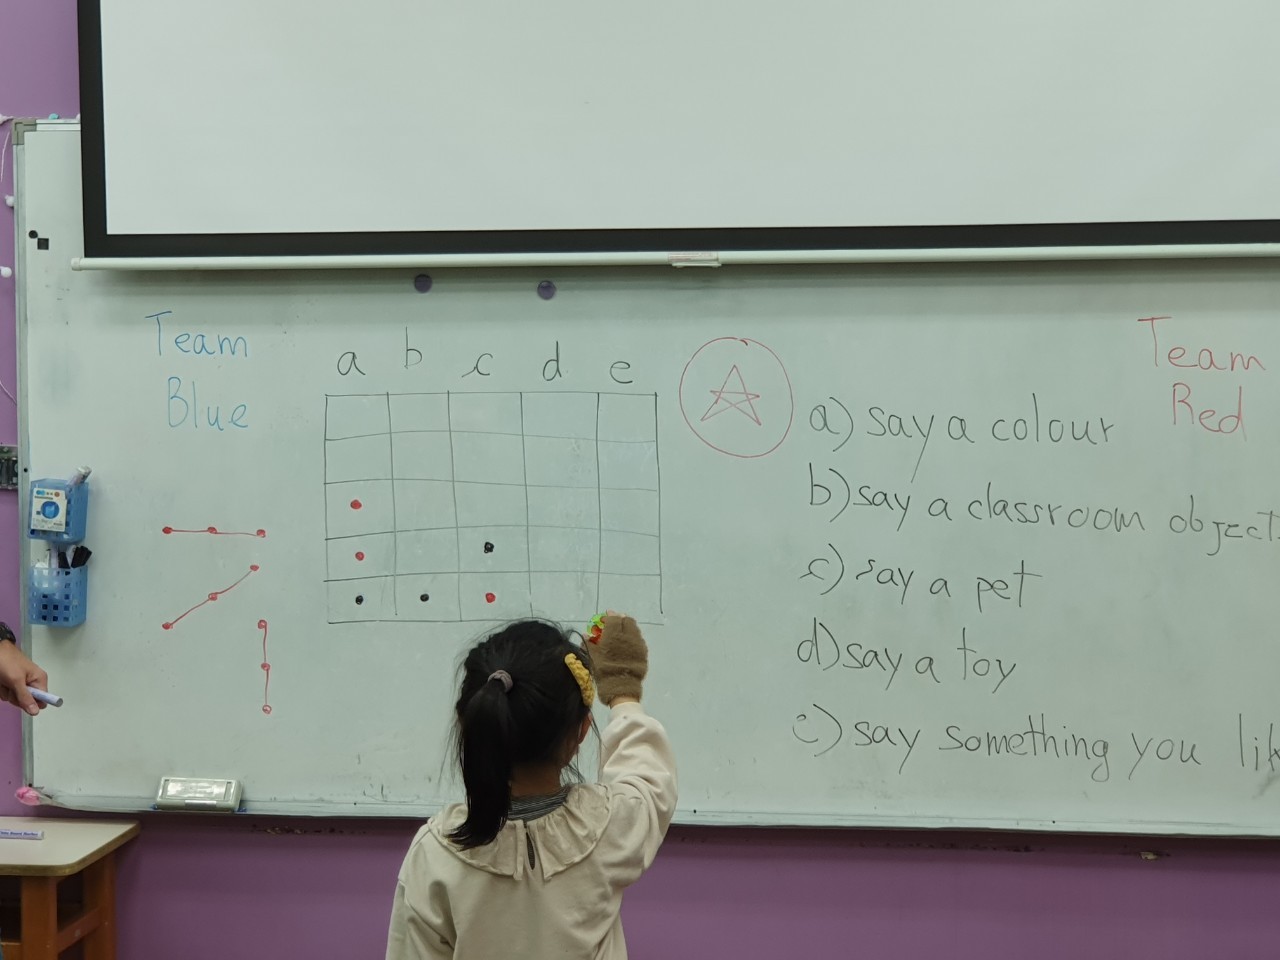 Team
Blue
a b c d e
Team
Red
a) say a colour
b) say a classroom object
c) say a pet
d) say a toy
e) say something you lik